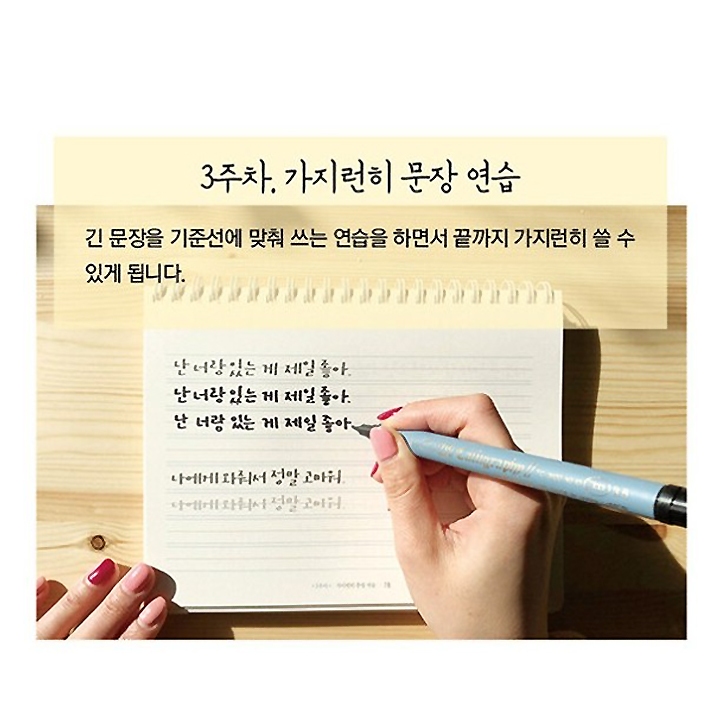 3주차. 가지런히 문장 연습
긴 문장을 기준선에 맞춰 쓰는 연습을 하면서 끝까지 가지런히 쓸 수
있게 됩니다.
난 너랑 있는 게 제일 좋아.
난 너랑 있는 게 제일 좋아.
난 너랑 있는 게 제일 좋아.
나에게 와줘서 정말 고마워.
나에게 와줘서 정말 고마워.